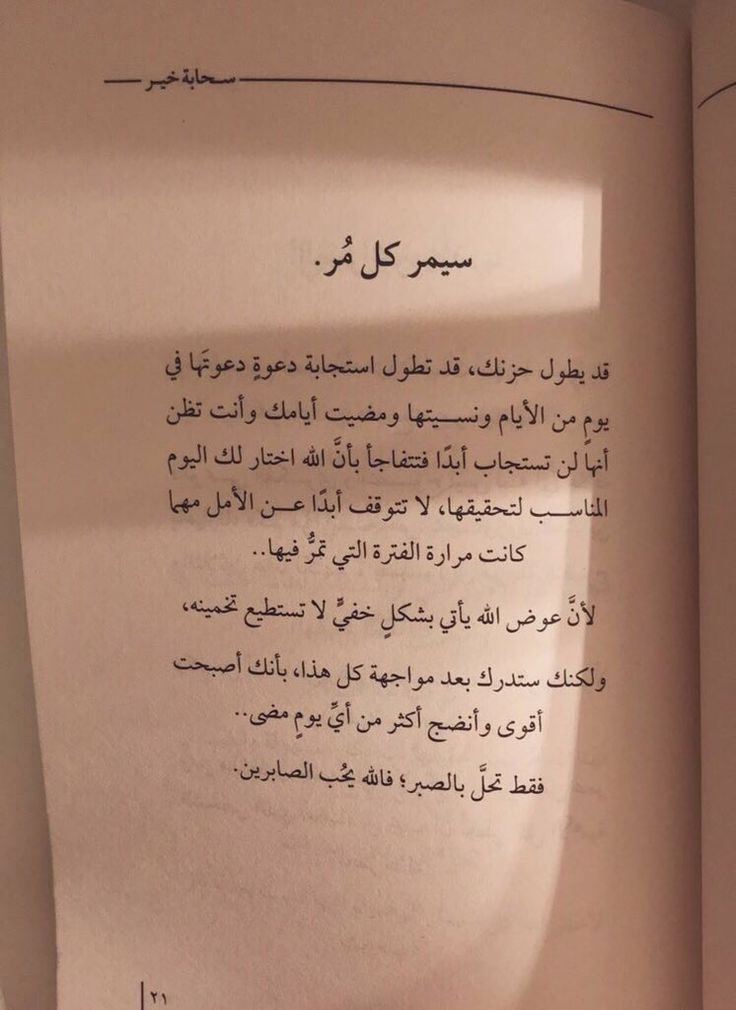 سحابة خير
سيمر كل مُر.
قد يطول حزنك، قد تطول استجابة دعوةٍ دعوتَها في
يومٍ من الأيام ونسيتها ومضيت أيامك وأنت تظن
أنها لن تستجاب أبدًا فتتفاجأ بأنَّ الله اختار لك اليوم
المناسب لتحقيقها، لا تتوقف أبدًا عن الأمل مهما
كانت مرارة الفترة التي تمرُّ فيها..
لأنَّ عوض الله يأتي بشكلٍ خفيٍّ لا تستطيع تخمينه،
ولكنك ستدرك بعد مواجهة كل هذا، بأنك أصبحت
أقوى وأنضج أكثر من أيِّ يومٍ مضى..
فقط تحلَّ بالصبر؛ فالله يحُب الصابرين.
٢١